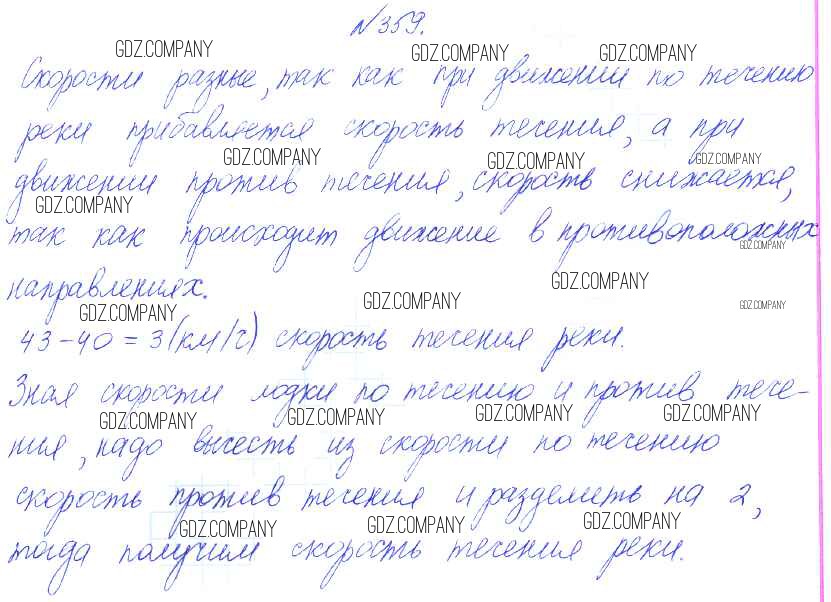 №359.
GDZ.COMPANY GDZ.COMPANY GDZ.COMPANY
Скорости разные, так как при движении по течению
реки прибавляется скорость течения, а при
GDZ.COMPANY GDZ.COMPANY GDZ.COMPANY
движении против течения, скорость снижается,
GDZ.COMPANY
так как происходит движение в противоположных
GDZ.COMPANY
направлениях.
GDZ.COMPANY
GDZ.COMPANY GDZ.COMPANY GDZ.COMPANY
43-40=3(км/ч) скорость течения реки.
Зная скорости лодки по течению и против тече-
GDZ.COMPANY GDZ.COMPANY GDZ.COMPANY GDZ.COMPANY
ния, надо вычесть из скорости по течению
скорость против течения и разделить на 2,
GDZ.COMPANY GDZ.COMPANY GDZ.COMPANY
тогда получим скорость течения реки.